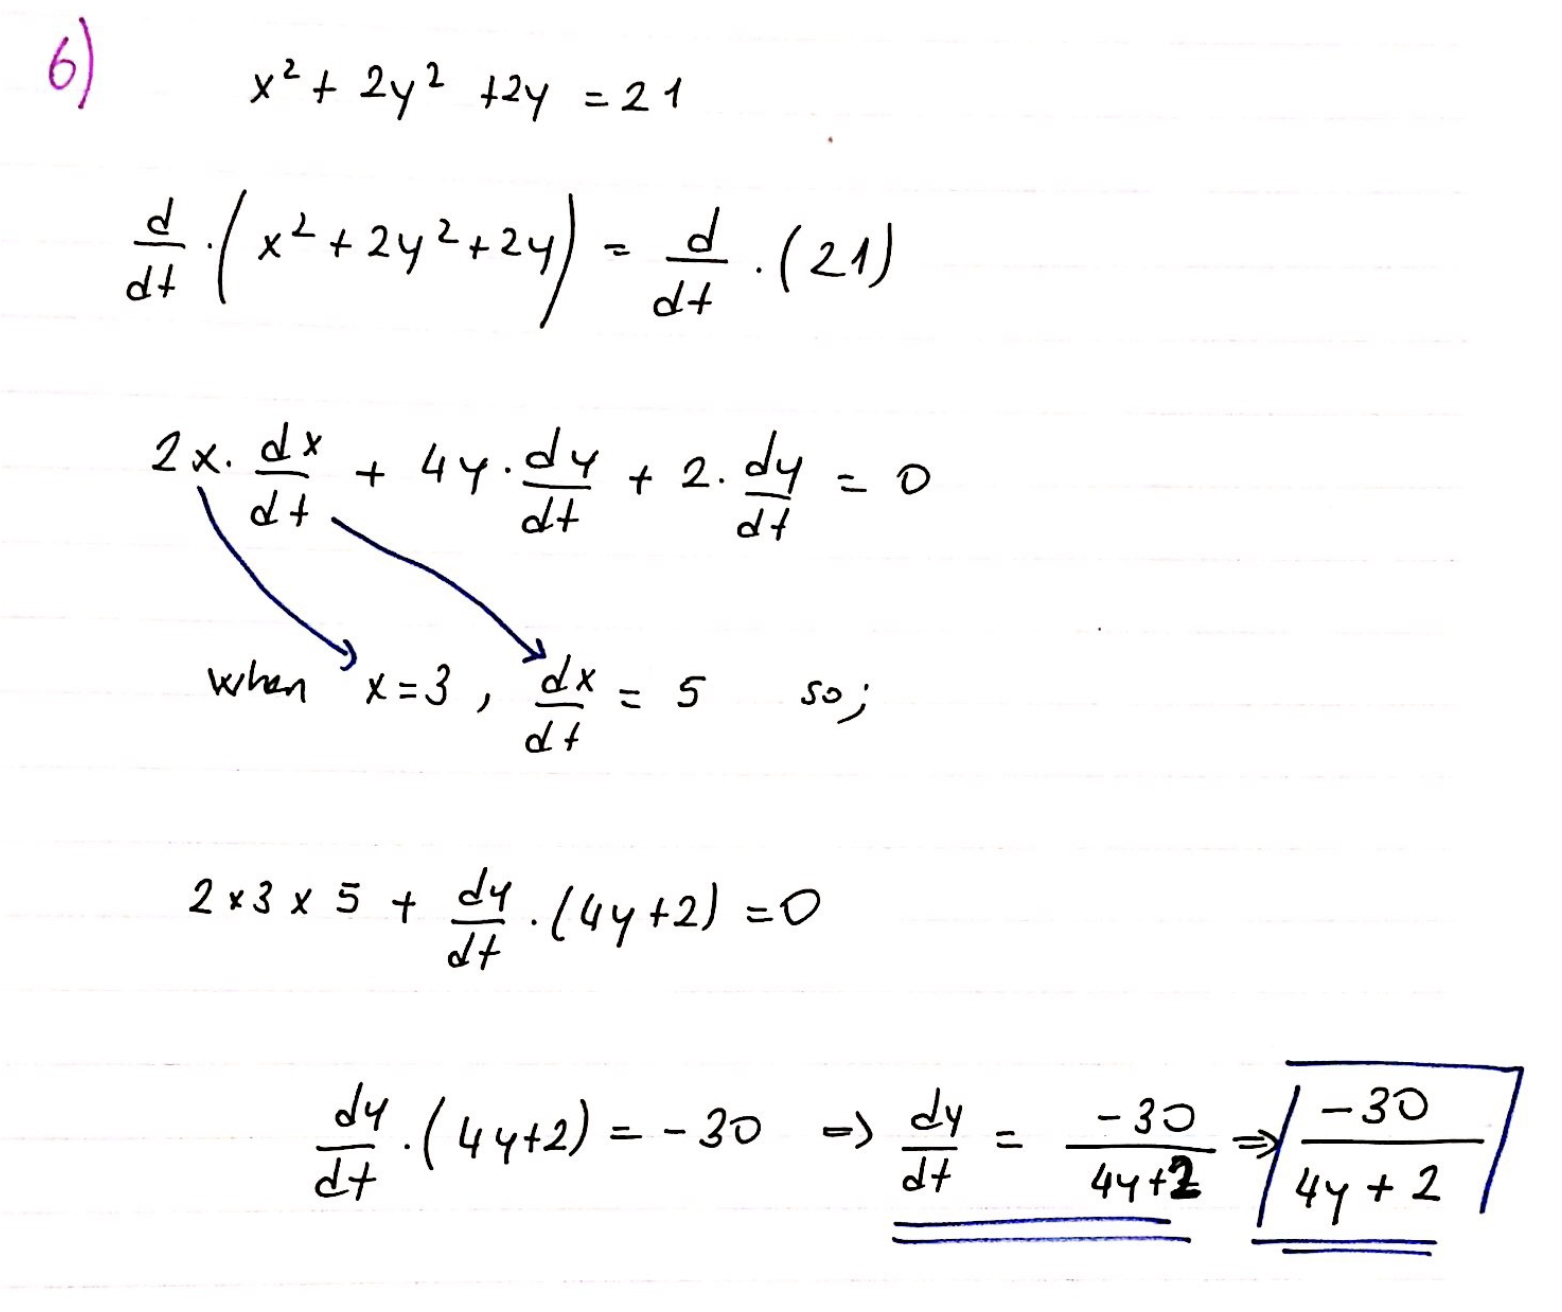 6)
x² + 2y² + 2y = 21
d/dt · (x² + 2y² + 2y) = d/dt · (21)
2x · dx/dt + 4y · dy/dt + 2 · dy/dt = 0
when x = 3 , dx/dt = 5 so;
2 × 3 × 5 + dy/dt · (4y + 2) = 0
dy/dt · (4y + 2) = - 30 ⇒ dy/dt = -30/4y+2 ⇒ -30/4y + 2